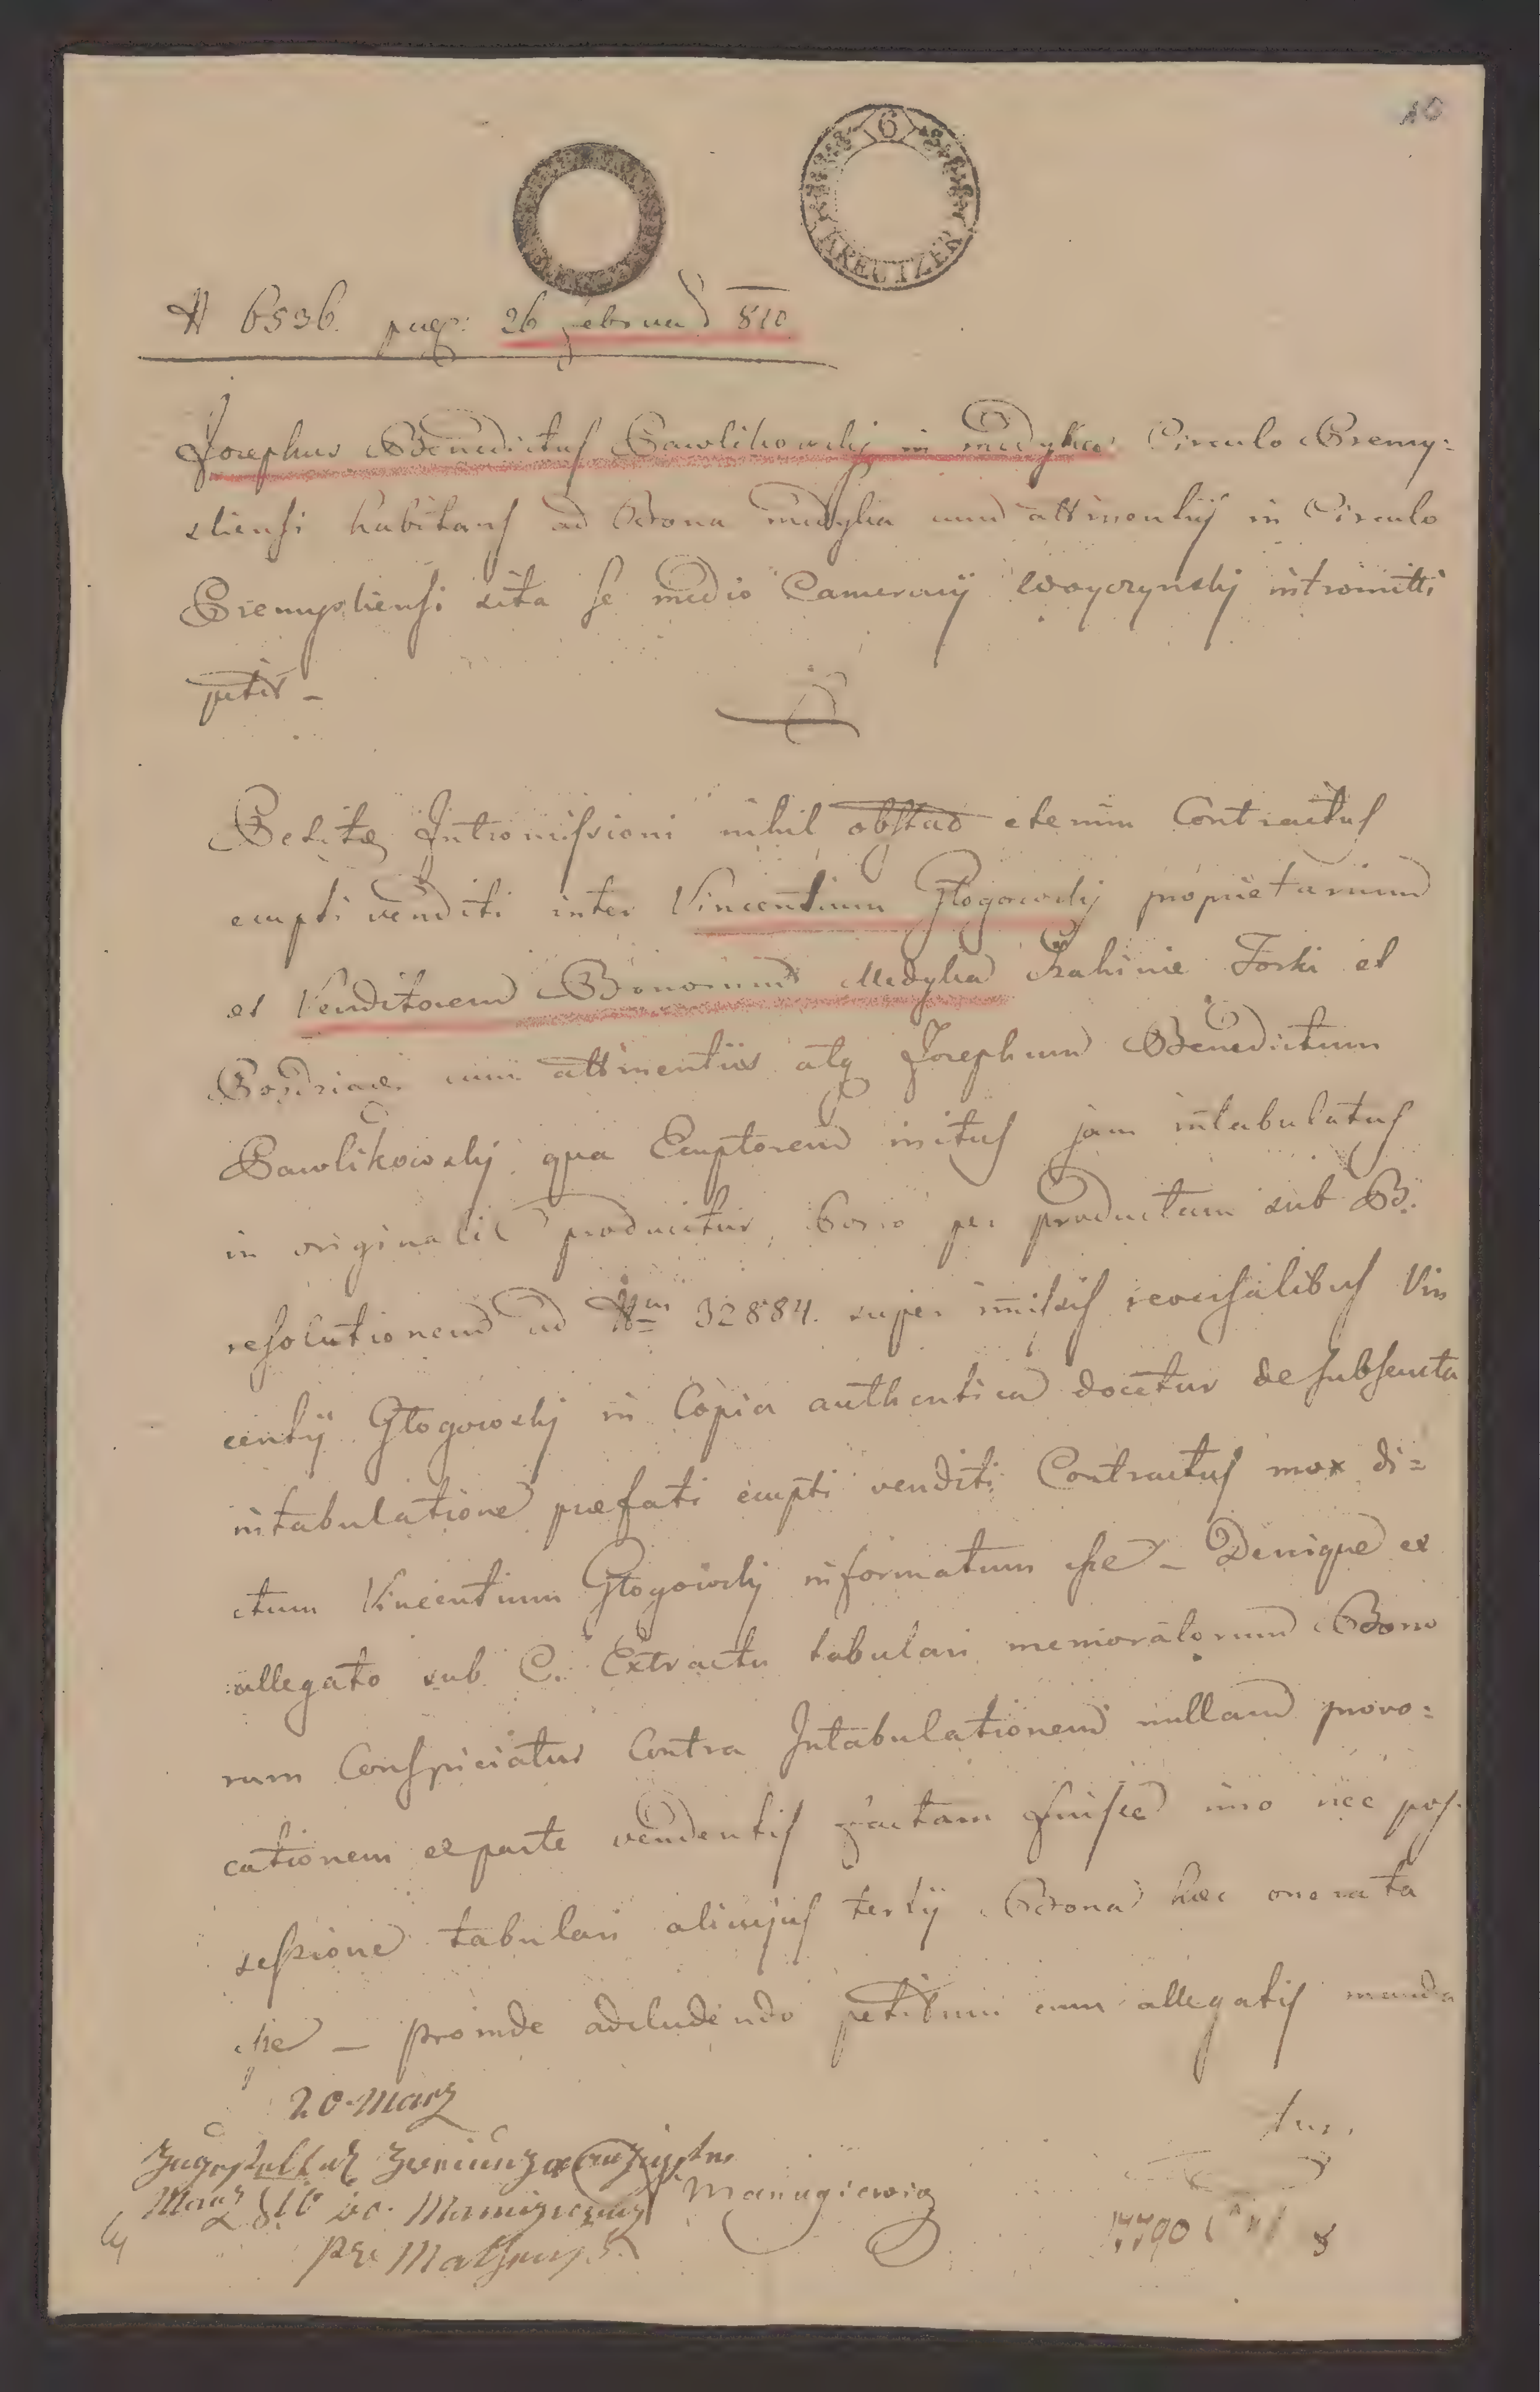 10
6
KREUTZER
N 6536. præs: 26 Februar 810
Josephus Benedictus Pawlikowskj in Medyka Circulo Premy:
sliensi habitans ad Bona Medyka cum attinentiis in Circulo
Premysliensi sita se medio Camerarij Woyczynskj intromitti
petit –
Petitæ Intromissioni nihil obstad etenim Contractus
empti venditi inter Vincentium Głogowskj proprietarium
et Venditorem Bonorum Medyka Szahinie Torki et
Pozdziacz cum attinentiis atq Josephum Benedictum
Pawlikowskj qua Emptorem initus jam intabulatus
in originali producitur, porro per productam sub B.
resolutionem ad Nm 32884. super immissis reversalibus Vin
centij Głogowskj in Copia authentica docetur de subsecuta
intabulatione præfati empti venditi Contractus mox di=
ctum Vincentium Głogowskj informatum esse – Denique ex
allegato sub C. Extractu tabulari memoratorum Bono
rum Conspiciatur Contra Intabulationem nullam provo:
cationem ex parte vendentis factam fuisse imo nec pos:
sessione tabulari alicujus tertij Bona hæc onerata
esse – proinde adcludendo petitum cum allegatis manda
tur.
20 März
Manugiewicz